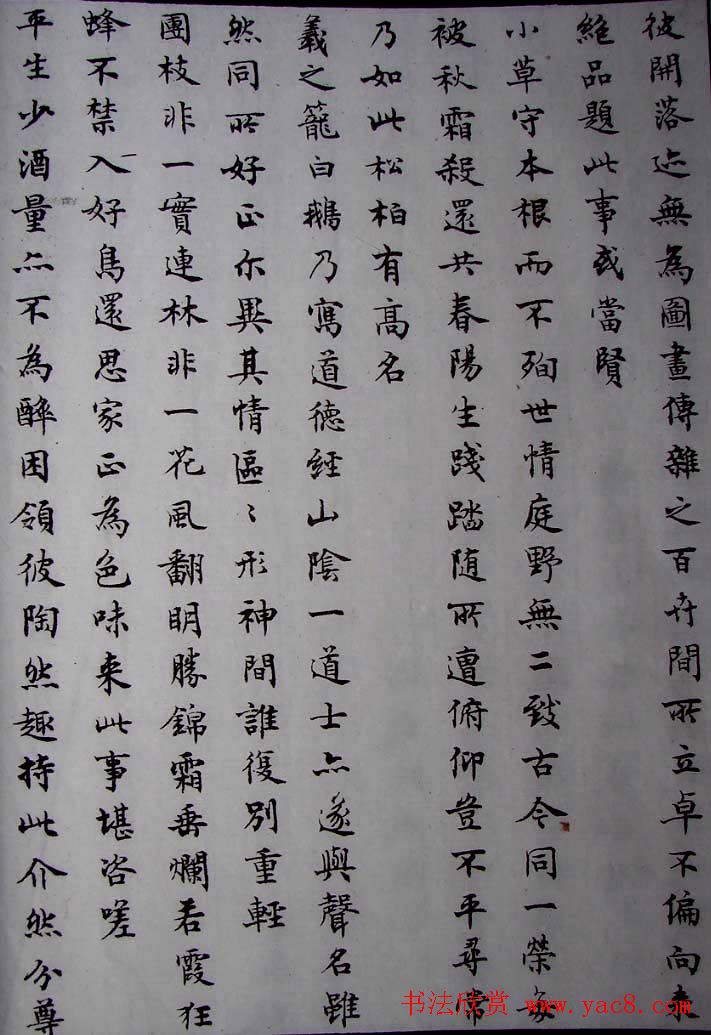 彼開落迹無為圖畫傳雜之百卉間所立卓不偏向未
絕品題此事或當賢
小草守本根而不殉世情庭野無二致古今同一榮
被秋霜殺還共春陽生踐踏随所遭俯仰豈不平尋常
乃如此松柏有高名
羲之籠白鵝乃寫道德經山陰一道士亦遂與聲名雖
然同所好正尔異其情區〻形神間誰復別重輕
團枝非一實連林非一花風翻明勝錦霜垂爛若霞狂
蜂不禁入好鳥還思家正為色味来此事堪咨嗟
平生少酒量亦不為醉困領彼陶然趣持此介然分尊
书法欣赏 www.yac8.com